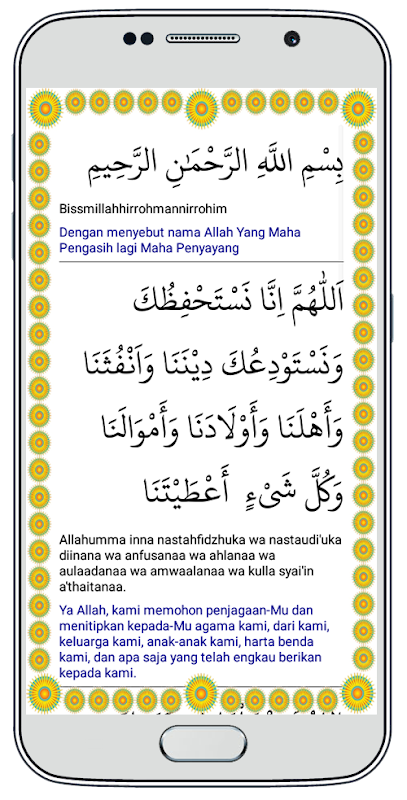 بِسْمِ اللَّهِ الرَّحْمَٰنِ الرَّحِيمِ
Bissmillahhirrohmannirrohim
Dengan menyebut nama Allah Yang Maha
Pengasih lagi Maha Penyayang
اَللّٰهُمَّ اِنَّا نَسْتَحْفِظُكَ
وَنَسْتَوْدِعُكَ دِيْنَنَا وَاَنْفُثَنَا
وَأَهْلَنَا وَأَوْلَادَنَا وَأَمْوَالَنَا
وَكُلَّ شَىْءٍ أَعْطَيْتَنَا
Allahumma inna nastahfidzhuka wa nastaudi'uka
diinana wa anfusanaa wa ahlanaa wa
aulaadanaa wa amwaalanaa wa kulla syai'in
a'thaitanaa.
Ya Allah, kami memohon penjagaan-Mu dan
menitipkan kepada-Mu agama kami, dari kami,
keluarga kami, anak-anak kami, harta benda
kami, dan apa saja yang telah engkau berikan
kepada kami.